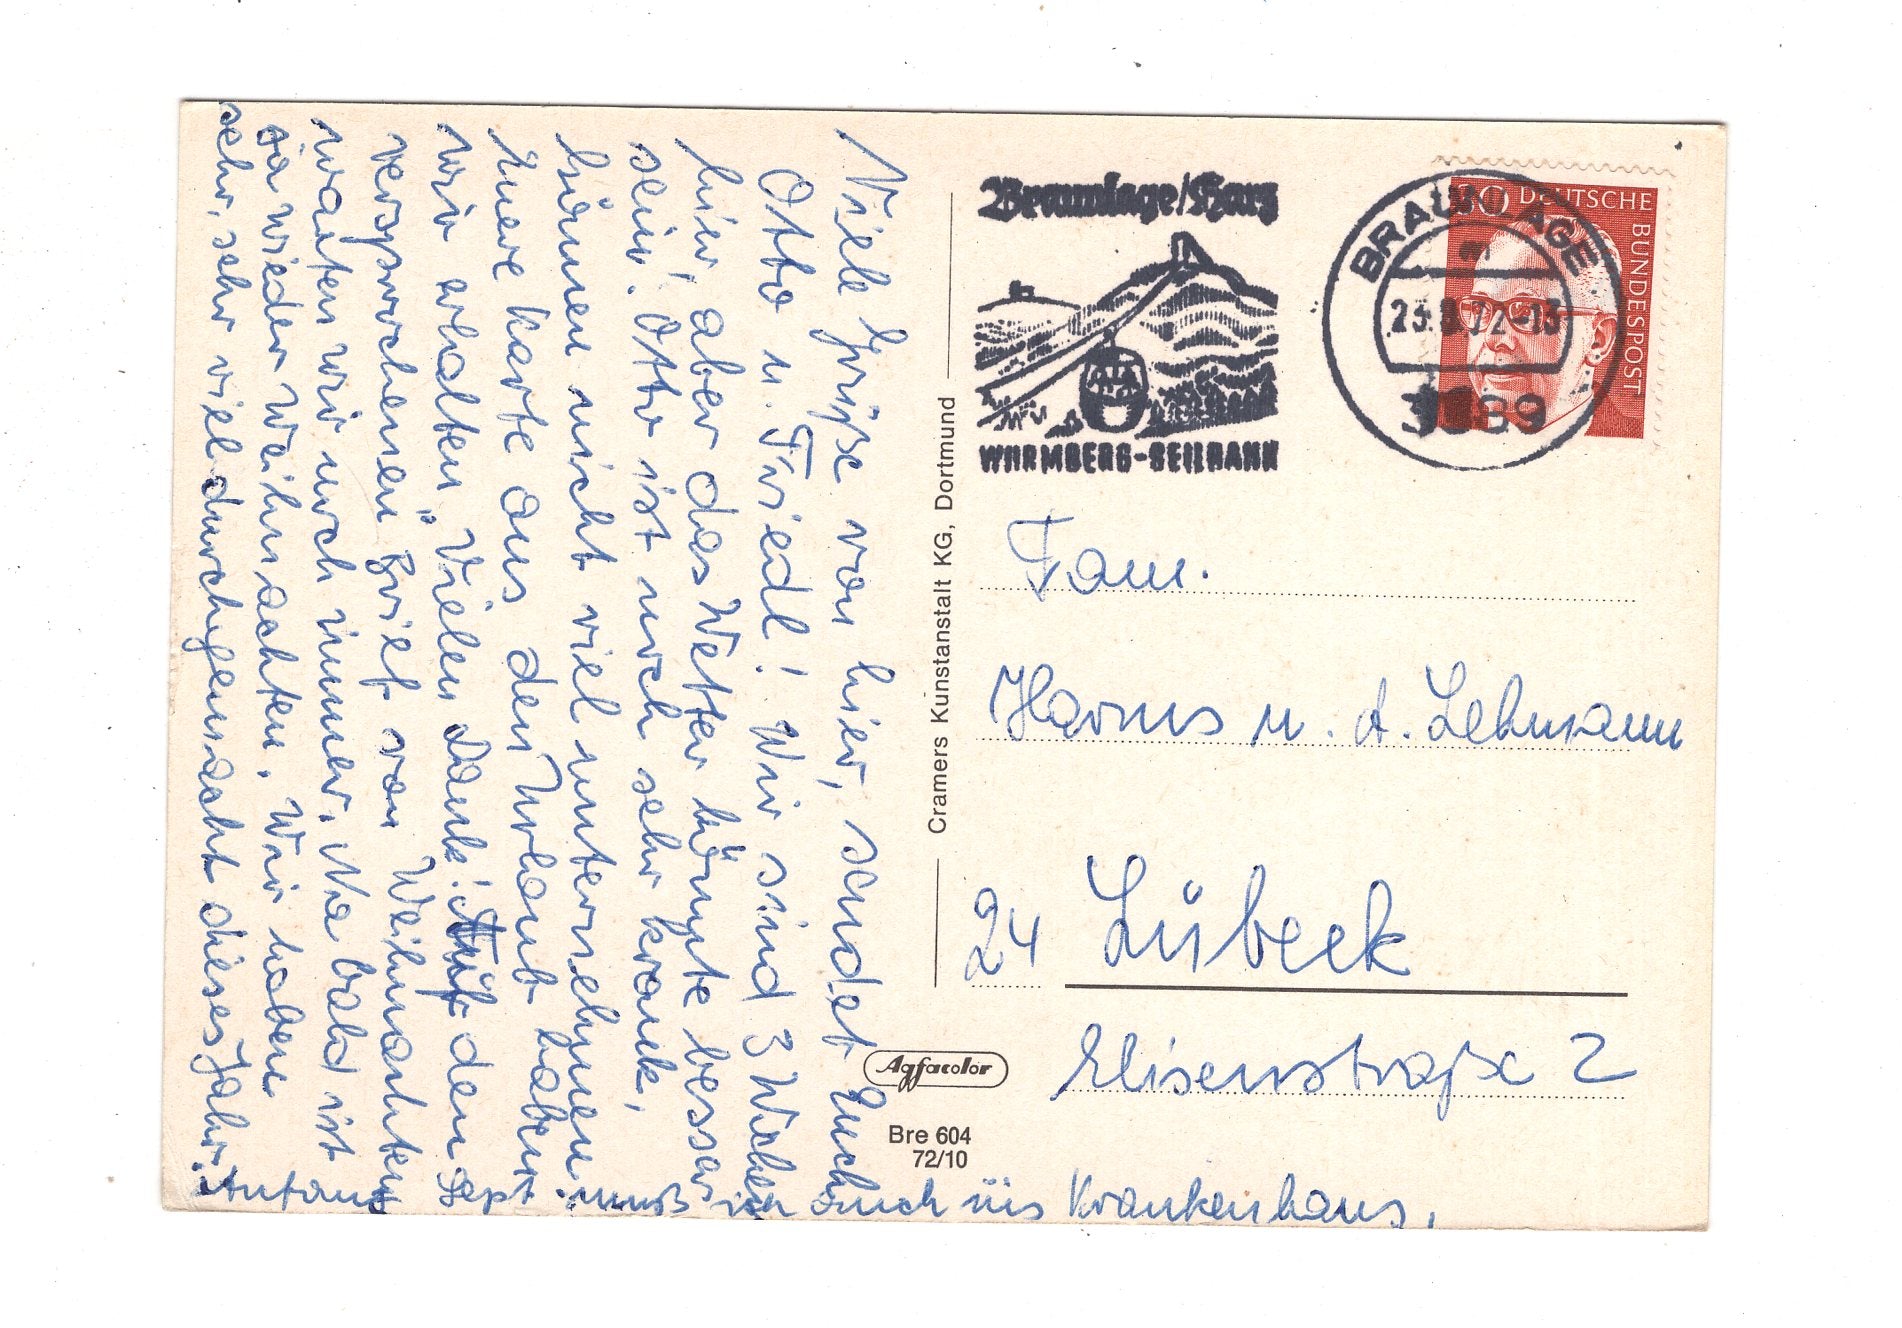 Viele Grüße von hier, sendet Euch
Otto u. Friedl! Wir sind 3 Wochen
hier, aber das Wetter könnte besser
sein. Otto ist noch sehr krank,
können nicht viel unternehmen
Eure Karte aus den Urlaub haben
wir erhalten, Vielen Dank! Auf den
versprochenen Brief von Weihnachten
warten wir noch immer. Na bald ist
ja wieder Weihnachten. Wir haben
sehr, sehr viel durchgemacht dieses Jahr.
Anfang Sept. muß ich auch ins Krankenhaus.
Cramers Kunstanstalt KG, Dortmund
Braunlage/Harz
WURMBERG-SEILBAHN
BRAUNLAGE
23.8.72-13
3389
80 DEUTSCHE
BUNDESPOST
Fam.
Harms u. A. Lehmann
24 Lübeck
Elisenstraße 2
Agfacolor
Bre 604
72/10